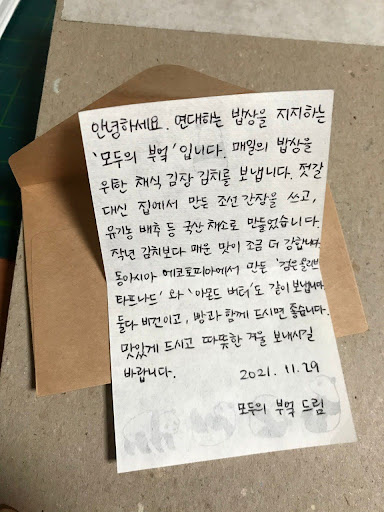 안녕하세요. 연대하는 밥상을 지지하는
'모두의 부엌' 입니다. 매일의 밥상을
위한 채식 김장 김치를 보냅니다. 젓갈
대신 집에서 만든 조선간장을 쓰고,
유기농 배추 등 국산 채소로 만들었습니다.
작년 김치보다 매운 맛이 조금 더 강합니다.
동아시아 에코토피아에서 만든 '검은 올리브
타프나드' 와 '아몬드 버터'도 같이 보냅니다.
둘다 비건이고, 빵과 함께 드시면 좋습니다.
맛있게 드시고 따뜻한 겨울 보내시길
바랍니다. 2021. 11. 29
모두의 부엌 드림